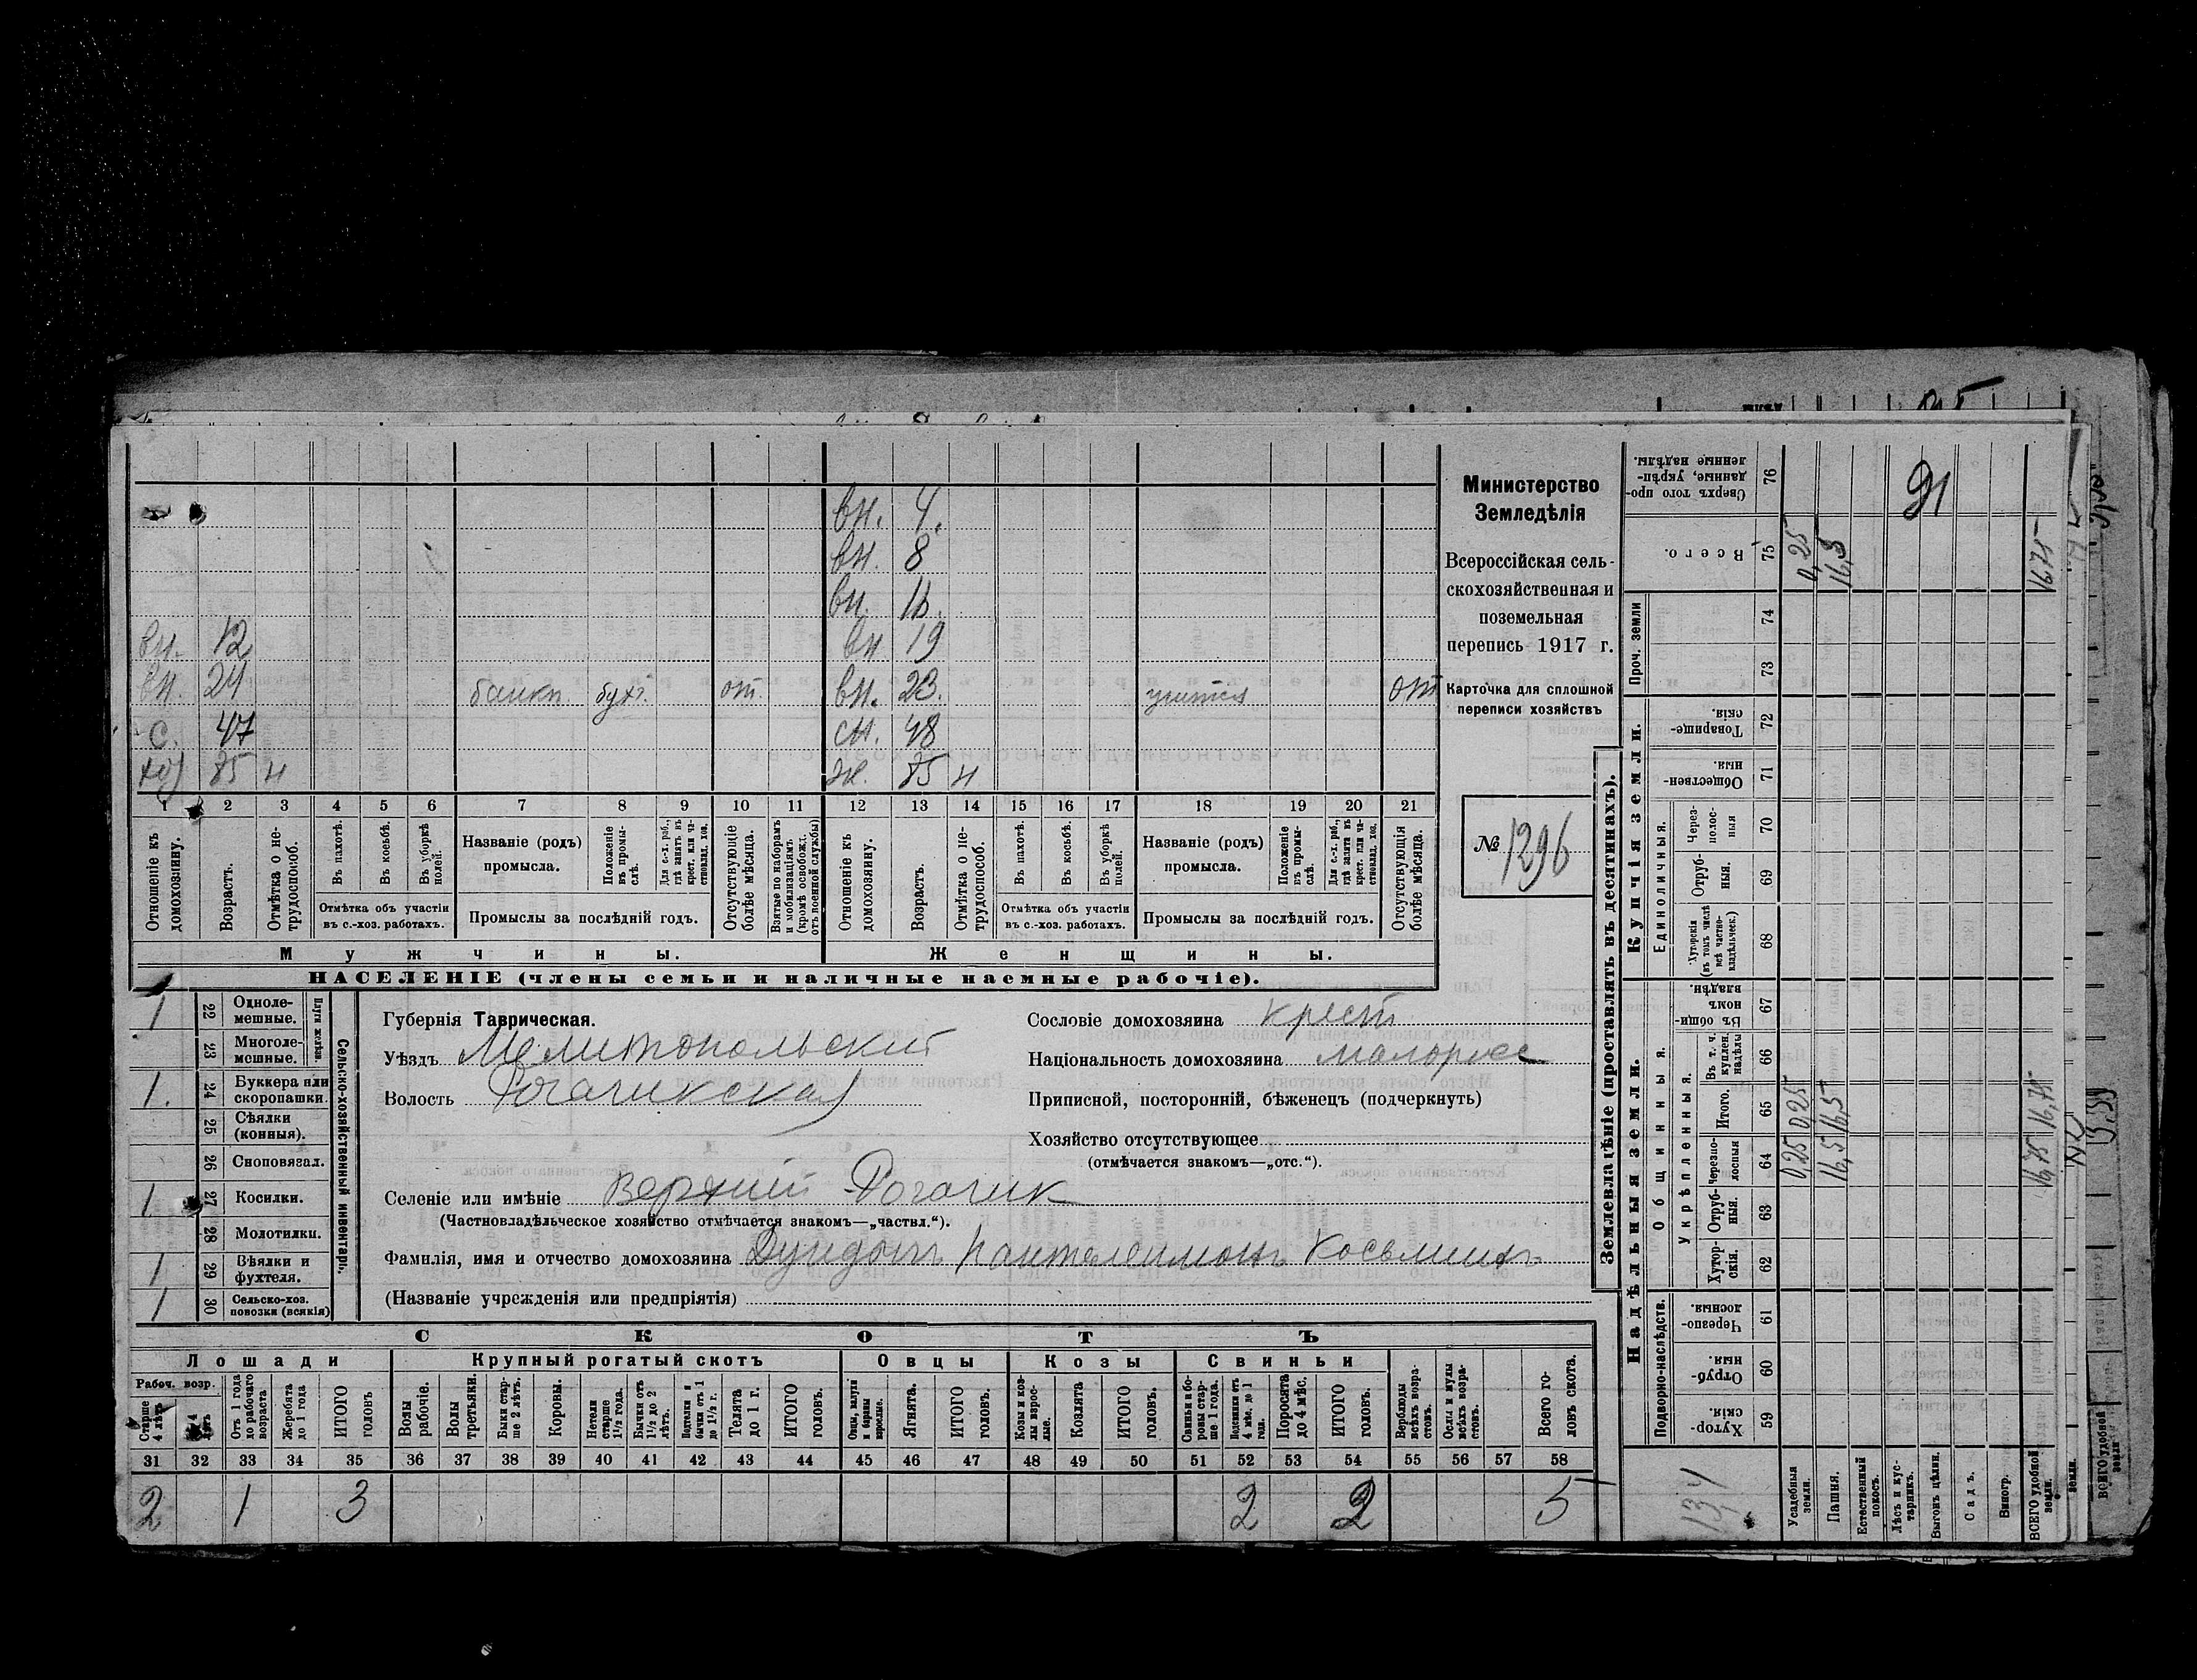 вн. 4.
вн. 8
вн. 11.
вн. 12 вн. 19
вн. 24 банкп. бухг. от. вн. 23. учится от
с. 47 сн. 48
хоз 75 н ж. 75 н
1 2 3 4 5 6 7 8 9 10 11 12 13 14 15 16 17 18 19 20 21
Отношеніе къ домохозяину.
Возрастъ.
Отмѣтка о нетрудоспособ.
Въ пахотѣ.
Въ косьбѣ.
Въ уборкѣ полей.
Отмѣтка объ участіи въ с.-хоз. работахъ.
Названіе (родъ) промысла.
Положеніе въ промыслѣ.
Для с.-х. раб., гдѣ занятъ въ крест. или частновлад. хоз.
Промыслы за послѣдній годъ.
Отсутствующіе болѣе мѣсяца.
Взятые по наборамъ и мобилизаціямъ (кромѣ освобожд. отъ военной службы)
Отношеніе къ домохозяину.
Возрастъ.
Отмѣтка о нетрудоспособ.
Въ пахотѣ.
Въ косьбѣ.
Въ уборкѣ полей.
Отмѣтка объ участіи въ с.-хоз. работахъ.
Названіе (родъ) промысла.
Положеніе въ промыслѣ.
Для с.-х. раб., гдѣ занята въ крест. или частновлад. хоз.
Промыслы за послѣдній годъ.
Отсутствующія болѣе мѣсяца.
Мужчины. Женщины.
НАСЕЛЕНІЕ (члены семьи и наличные наемные рабочіе).
Министерство
Земледѣлія
Всероссійская сель-
скохозяйственная и
поземельная
перепись 1917 г.
Карточка для сплошной
переписи хозяйствъ
№ 1296
1 22 Однолемешные.
23 Многолемешные.
Плуги желѣзн.
1. 24 Буккера или скоропашки.
25 Сѣялки (конныя).
26 Сноповязал.
1 27 Косилки.
28 Молотилки.
1 29 Вѣялки и фухтеля.
1 30 Сельско-хоз. повозки (всякія)
Сельско-хозяйственный инвентарь.
Губернія Таврическая.
Уѣздъ Мелитопольский
Волость Рогачикская
Селеніе или имѣніе Верхний Рогачик
(Частновладѣльческое хозяйство отмѣчается знакомъ—„частвл.“).
Фамилія, имя и отчество домохозяина Пантелеимонъ Косьминъ
(Названіе учрежденія или предпріятія)
Сословіе домохозяина крест
Національность домохозяина малорусс
Приписной, посторонній, бѣженецъ (подчеркнуть)
Хозяйство отсутствующее
(отмѣчается знакомъ—„отс.“).
СКОТЪ
Лошади Крупный рогатый скотъ Овцы Козы Свиньи
Рабоч. возр.
Старше 4 лѣтъ
Отъ 1 года до рабочаго возраста
Жеребята до 1 года
ИТОГО головъ
Волы рабочіе.
Волы третьяки.
Быки старше 2 лѣтъ.
Коровы.
Нетели старше 1½ года.
Бычки отъ 1½ до 2 лѣтъ.
Телки и бычки отъ 1 до 1½ г.
Телята до 1 г.
ИТОГО головъ.
Овцы, валухи и бараны взрослые.
Ягнята.
ИТОГО головъ.
Козы и козлы взрослые.
Козлята
ИТОГО головъ.
Свиньи и боровы старше 1 года.
Подсвинки отъ 4 мѣс. до 1 года.
Поросята до 4 мѣс.
ИТОГО головъ.
Верблюды всѣхъ возрастовъ.
Ослы и мулы всѣхъ возрастовъ.
Всего головъ скота.
31 32 33 34 35 36 37 38 39 40 41 42 43 44 45 46 47 48 49 50 51 52 53 54 55 56 57 58
2 1 3 2 2 5
Землевладѣніе (проставлять въ десятинахъ).
Купчія земли.
Надѣльныя земли.
Сверхъ того проданные, укрѣпленные надѣлы. 76
91
Всего. 75 0,25 16,5 16,75
Проч. земли 74 73
Товарищескія. 72
Общественныя. 71
Единоличныя.
Черезполосныя 70
Отрубныя. 69
Хуторскія (въ томъ числѣ всѣ частновладѣльческ.) 68
Общинныя.
Въ общинномъ владѣн. 67
Укрѣпленныя.
Въ т. ч. куплен. надѣлы 66
Итого. 65 0,25 16,5 16,75
Черезполосныя 64 0,25 16,5 16,75
Отрубныя. 63
Хуторскія. 62
Подворно-наслѣдств.
Черезполосныя. 61
Отрубныя. 60
Хуторскія. 59
134
Усадебныя земли.
Пашня.
Естественный покосъ.
Лѣсъ и кустарникъ.
Выгонъ цѣлин.
Садъ.
Виногр.
ВСЕГО удобной земли.